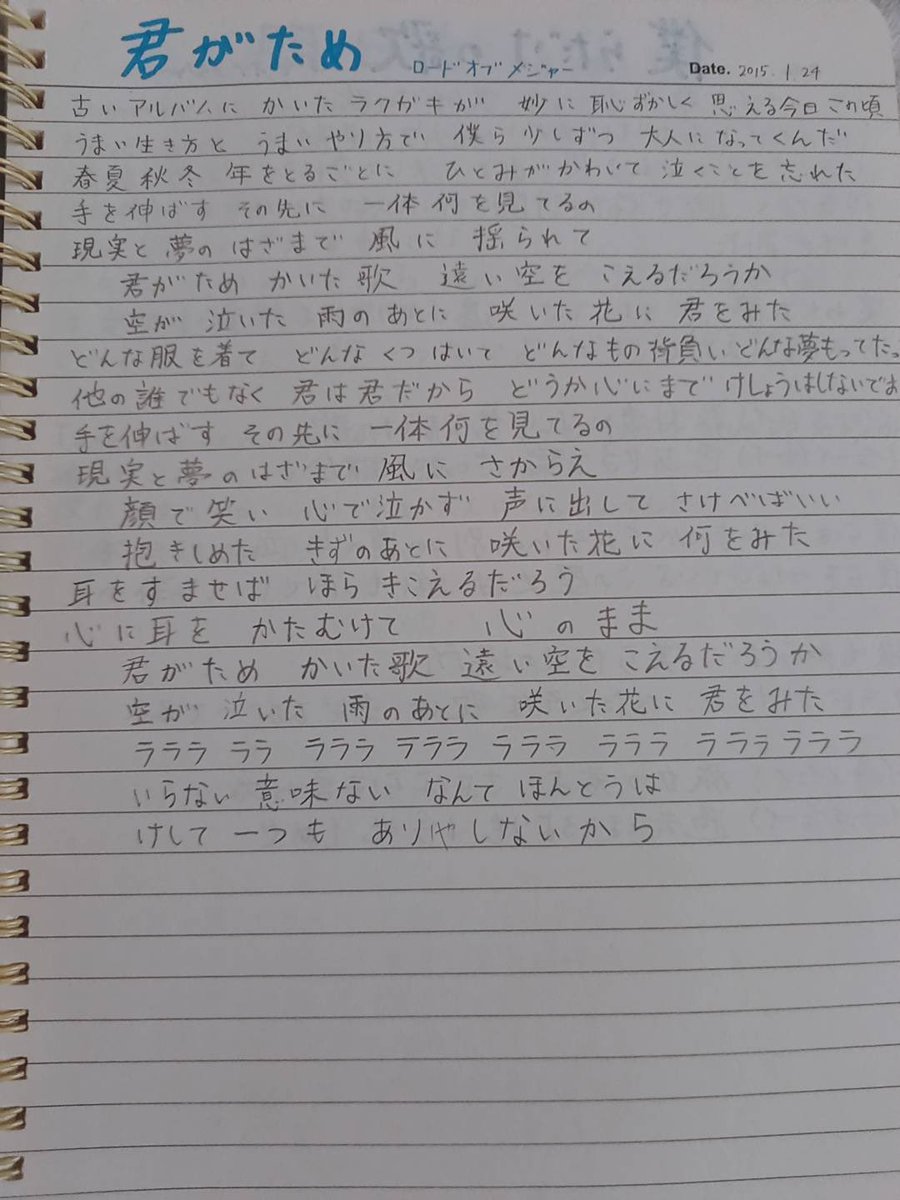 君がため
ロードオブメジャー
Date. 2015. 1. 24
古いアルバムに かいたラクガキが 妙に恥ずかしく思える今日この頃
うまい生き方と うまいやり方で 僕ら少しずつ 大人になってくんだ
春夏秋冬 年をとるごとに ひとみがかわいて泣くことを忘れた
手を伸ばす その先に 一体何を見てるの
現実と夢のはざまで 風に 揺られて
君がため かいた歌 遠い空を こえるだろうか
空が 泣いた 雨のあとに 咲いた花に 君をみた
どんな服を着て どんなくつはいて どんなもの背負いどんな夢もってたっ
他の誰でもなく 君は君だから どうか心にまで けしょうはしないでお
手を伸ばす その先に 一体何を見てるの
現実と夢のはざまで 風に さからえ
顔で笑い 心で泣かず 声に出して さけべばいい
抱きしめた きずのあとに 咲いた花に 何をみた
耳をすませば ほらきこえるだろう
心に耳を かたむけて 心のまま
君がため かいた歌 遠い空を こえるだろうか
空が 泣いた 雨のあとに 咲いた花に 君をみた
ラララ ララ ラララ ラララ ラララ ラララ ラララ ラララ
いらない 意味ない なんて ほんとうは
けして 一つも ありやしないから